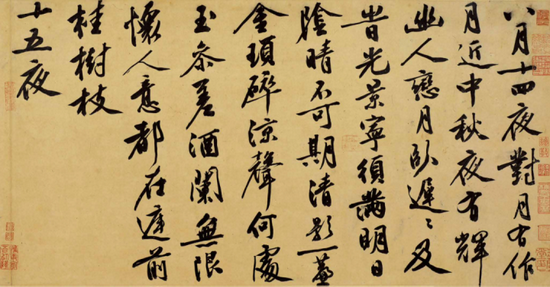 八月十四夜對月有作
月近中秋夜有輝
幽人戀月臥遲〻及
旹光景寧須滿明日
陰晴不可期清影一簾
金瑣碎涼聲何處
玉參差酒闌無限
懷人意都在庭前
桂樹枝
十五夜